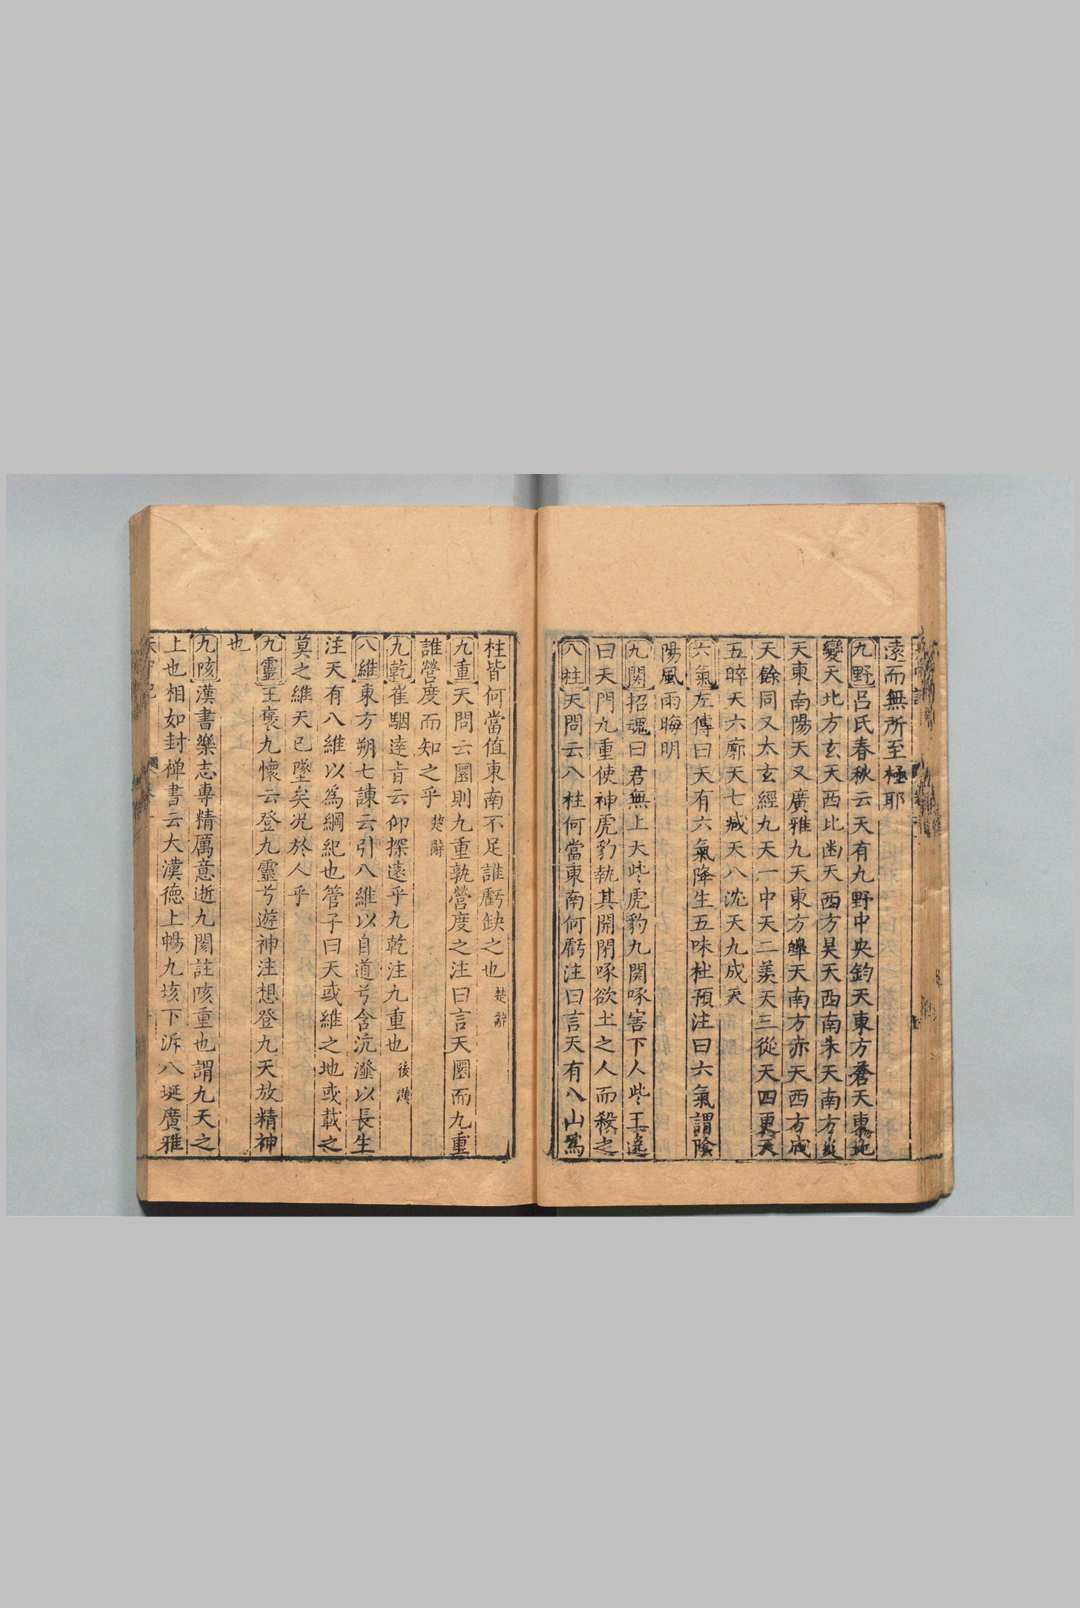 遠而無所至極耶
九野呂氏春秋云天有九野中央鈞天東方蒼天東北
變天北方玄天西北幽天西方昊天西南朱天南方炎
天東南陽天又廣雅九天東方皞天南方赤天西方成
天餘同又太玄經九天一中天二羨天三從天四更天
五晬天六廓天七減天八沈天九成天
六氣左傳曰天有六氣降生五味杜預注曰六氣謂陰
陽風雨晦明
九關招魂曰君無上天些虎豹九關啄害下人些王逸
曰天門九重使神虎豹執其開閉啄欲上之人而殺之
八柱天問云八柱何當東南何虧注曰言天有八山為
柱皆何當值東南不足誰虧缺之也楚辭
九重天問云圜則九重孰營度之注曰言天圜而九重
誰營度而知之乎楚辭
九乾崔駰達旨云仰探遠乎九乾注九重也後漢
八維東方朔七諫云引八維以自道兮含沆瀣以長生
注天有八維以為綱紀也管子曰天或維之地或載之
莫之維天已墜矣况於人乎
九靈王褒九懷云登九靈兮遊神注想登九天放精神
也
九陔漢書樂志專精厲意逝九閡註陔重也謂九天之
上也相如封禅書云大漢德上暢九垓下泝八埏廣雅